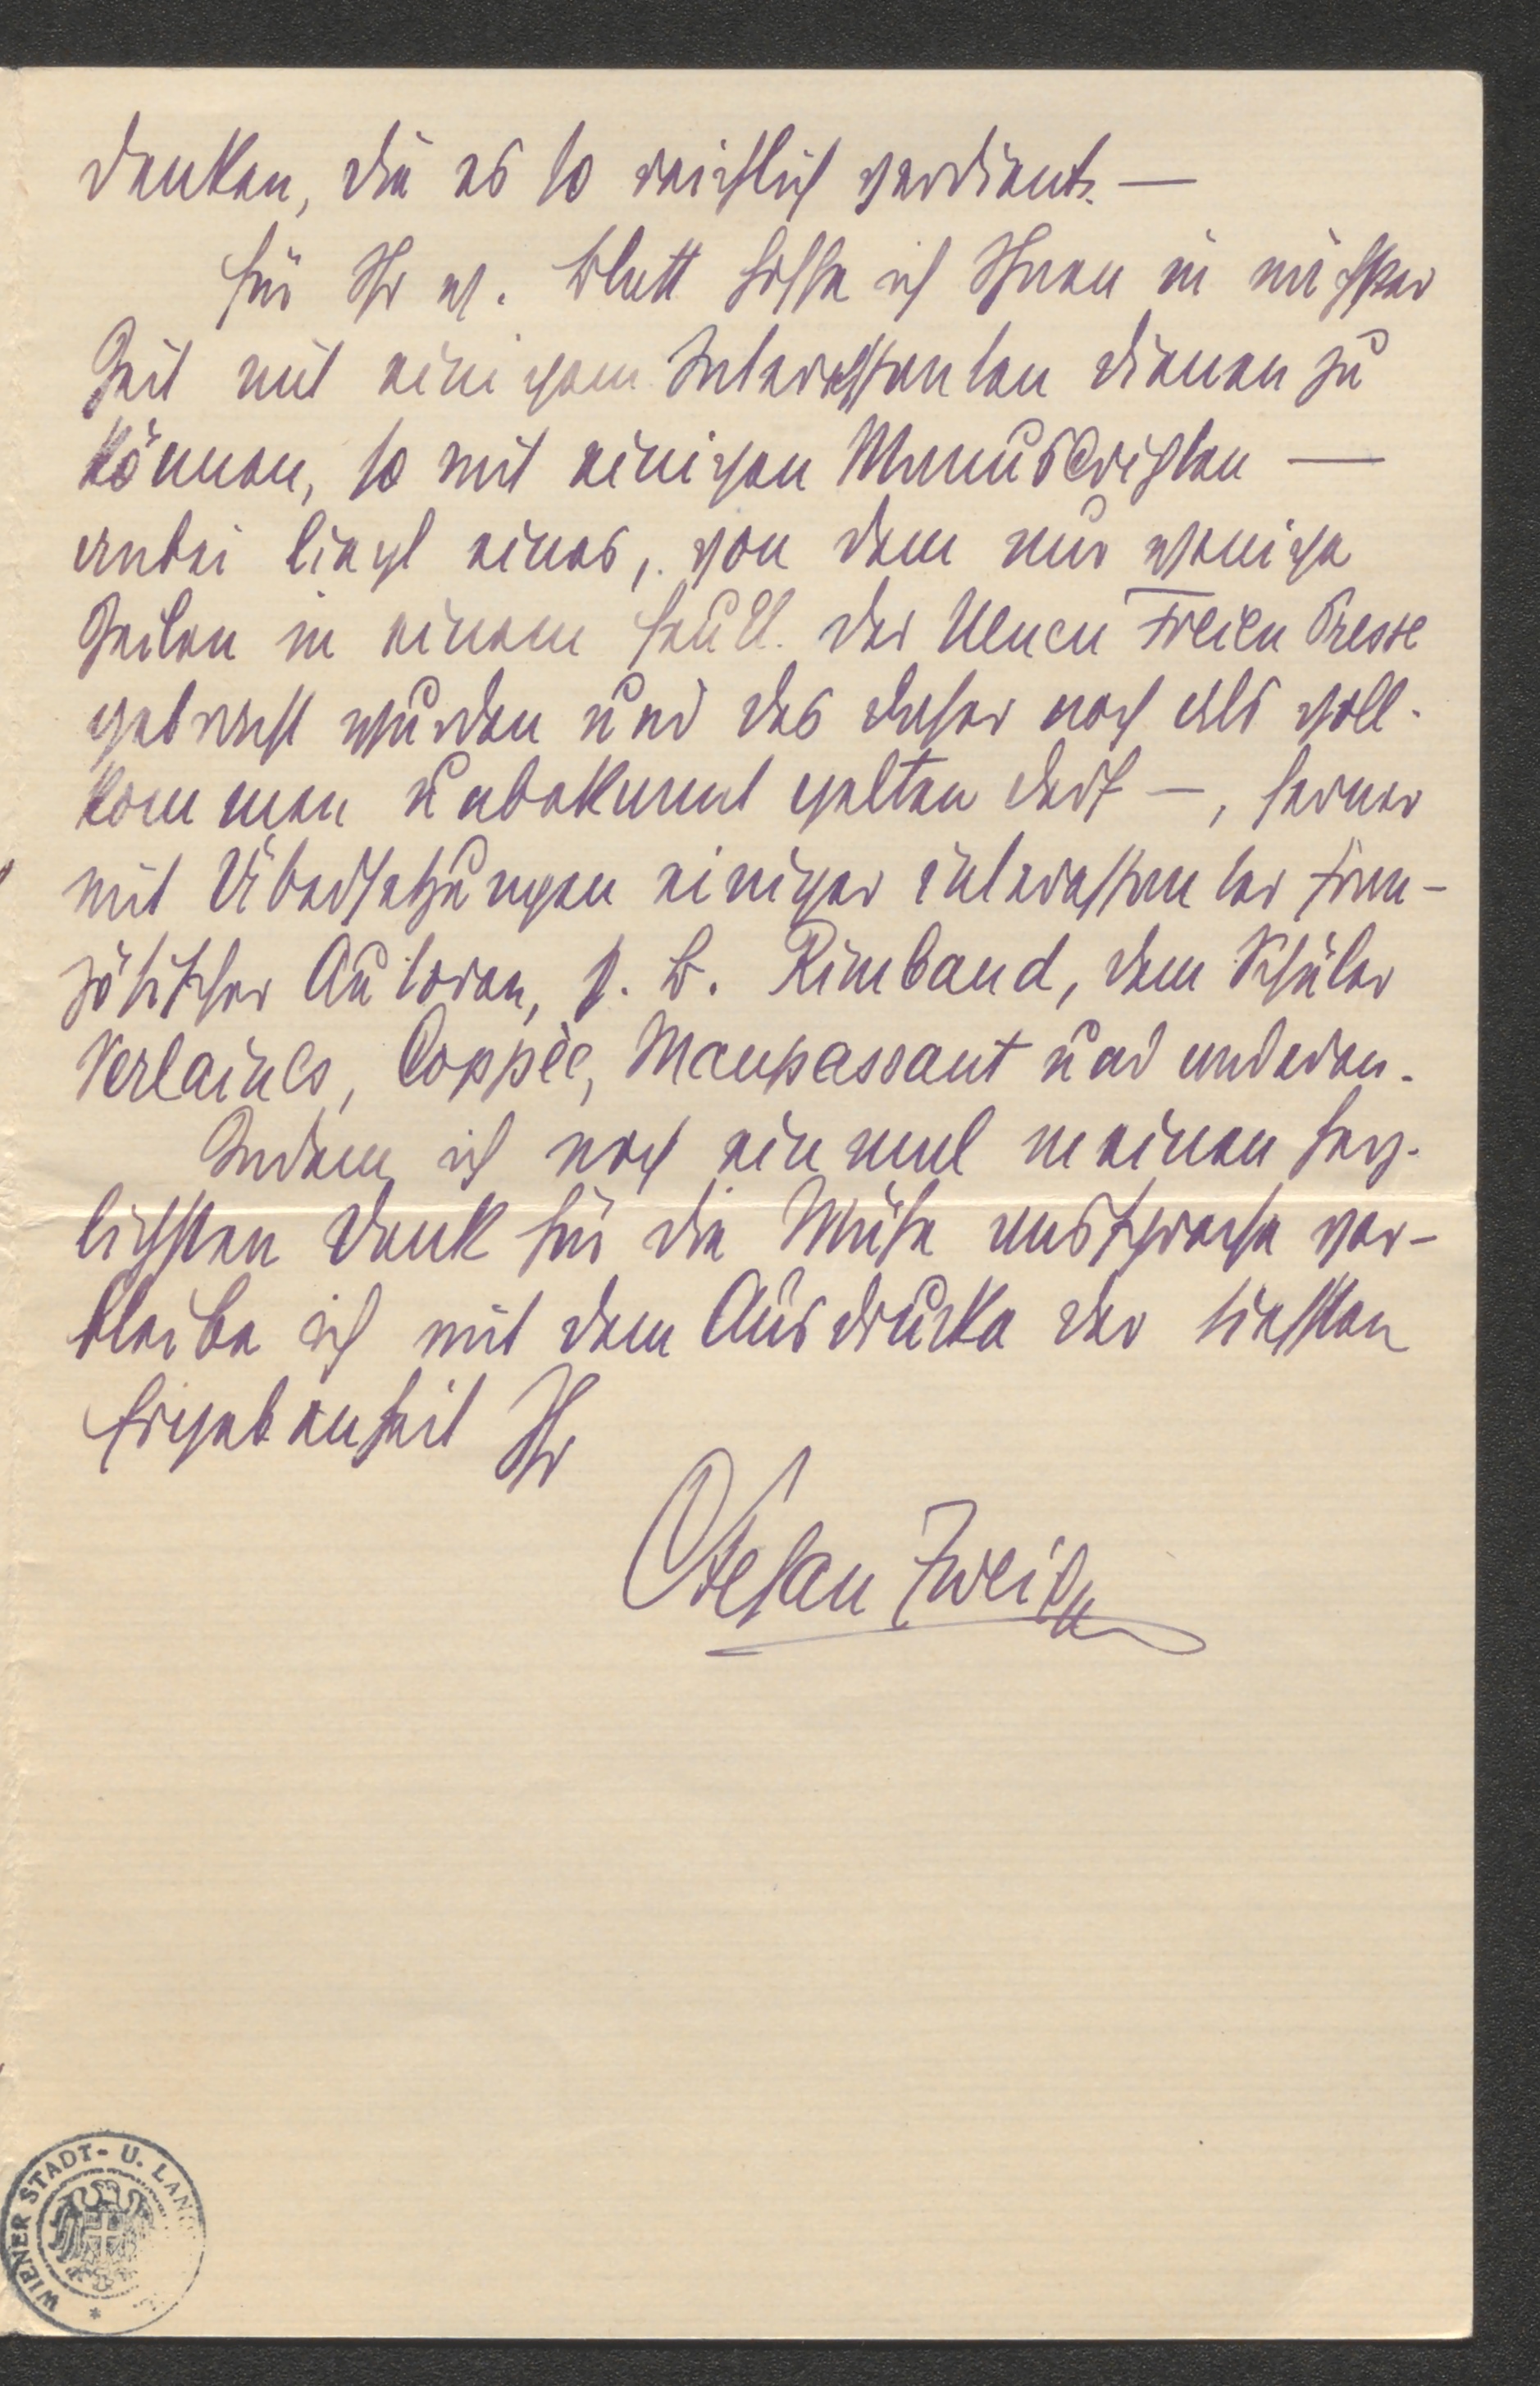 danken, die es so reichlich verdient. —
Für Ihr w. Blatt hoffe ich Ihnen in nächster
Zeit mit einigem Interessanten dienen zu
können, so mit einigen Manuscripten —
anbei liegt eines, von dem nur wenige
Zeilen in einem Feuill. der Neuen Freien Presse
gebracht wurden und das daher noch als voll-
kommen unbekannt gelten darf —, ferner
mit Übersetzungen einiger interessanter fran-
zösischer Autoren, z. B. Rimbaud, dem Schüler
Verlaines, Coppèe, Maupassant und anderen.
Indem ich noch einmal meinen herz-
lichsten Dank für die Mühe ausspreche ver-
bleibe ich mit dem Ausdrucke der tiefsten
Ergebenheit Ihr
Stefan Zweig
WIENER STADT- U. LAN